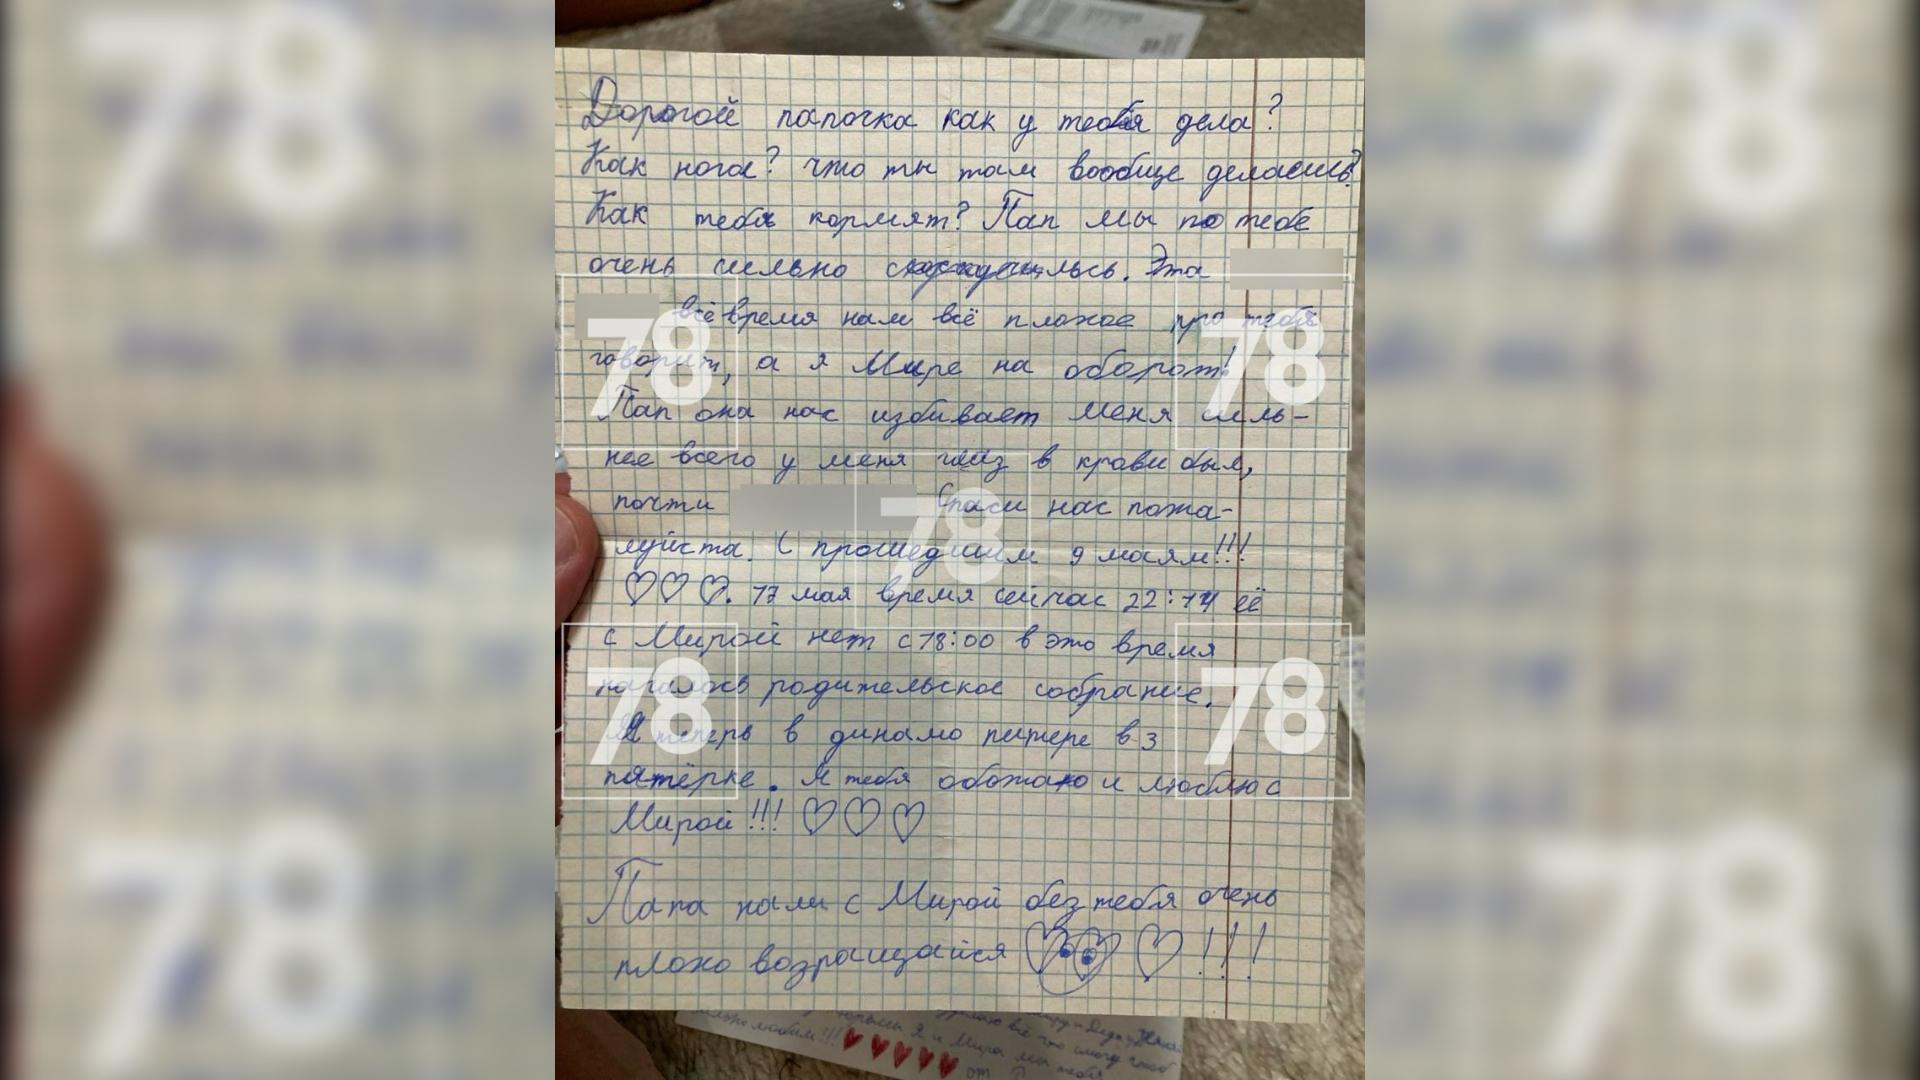 Дорогой папочка как у тебя дела?
Как нога? что ты там вообще делаешь?
Как тебя кормят? Пап мы по тебе
очень сильно Эта
всё время нам всё плохое про тебя
говорит, а я Мире на оборот!
Пап она нас избивает меня силь-
нее всего у меня глаз в крови был,
почти Спаси нас пожа-
луйста. С прошедшим 9 маям!!!
♡♡♡. 17 мая время сейчас 22:14 её
с Мирой нет с 18:00 в это время
началось родительское собрание.
Я теперь в динамо питере в 3
пятёрке. Я тебя обожаю и люблю с
Мирой!!! ♡♡♡
Папа нам с Мирой без тебя очень
плохо возращайся ♡♡♡!!!
78
78
78
78
78
78
78
78
78